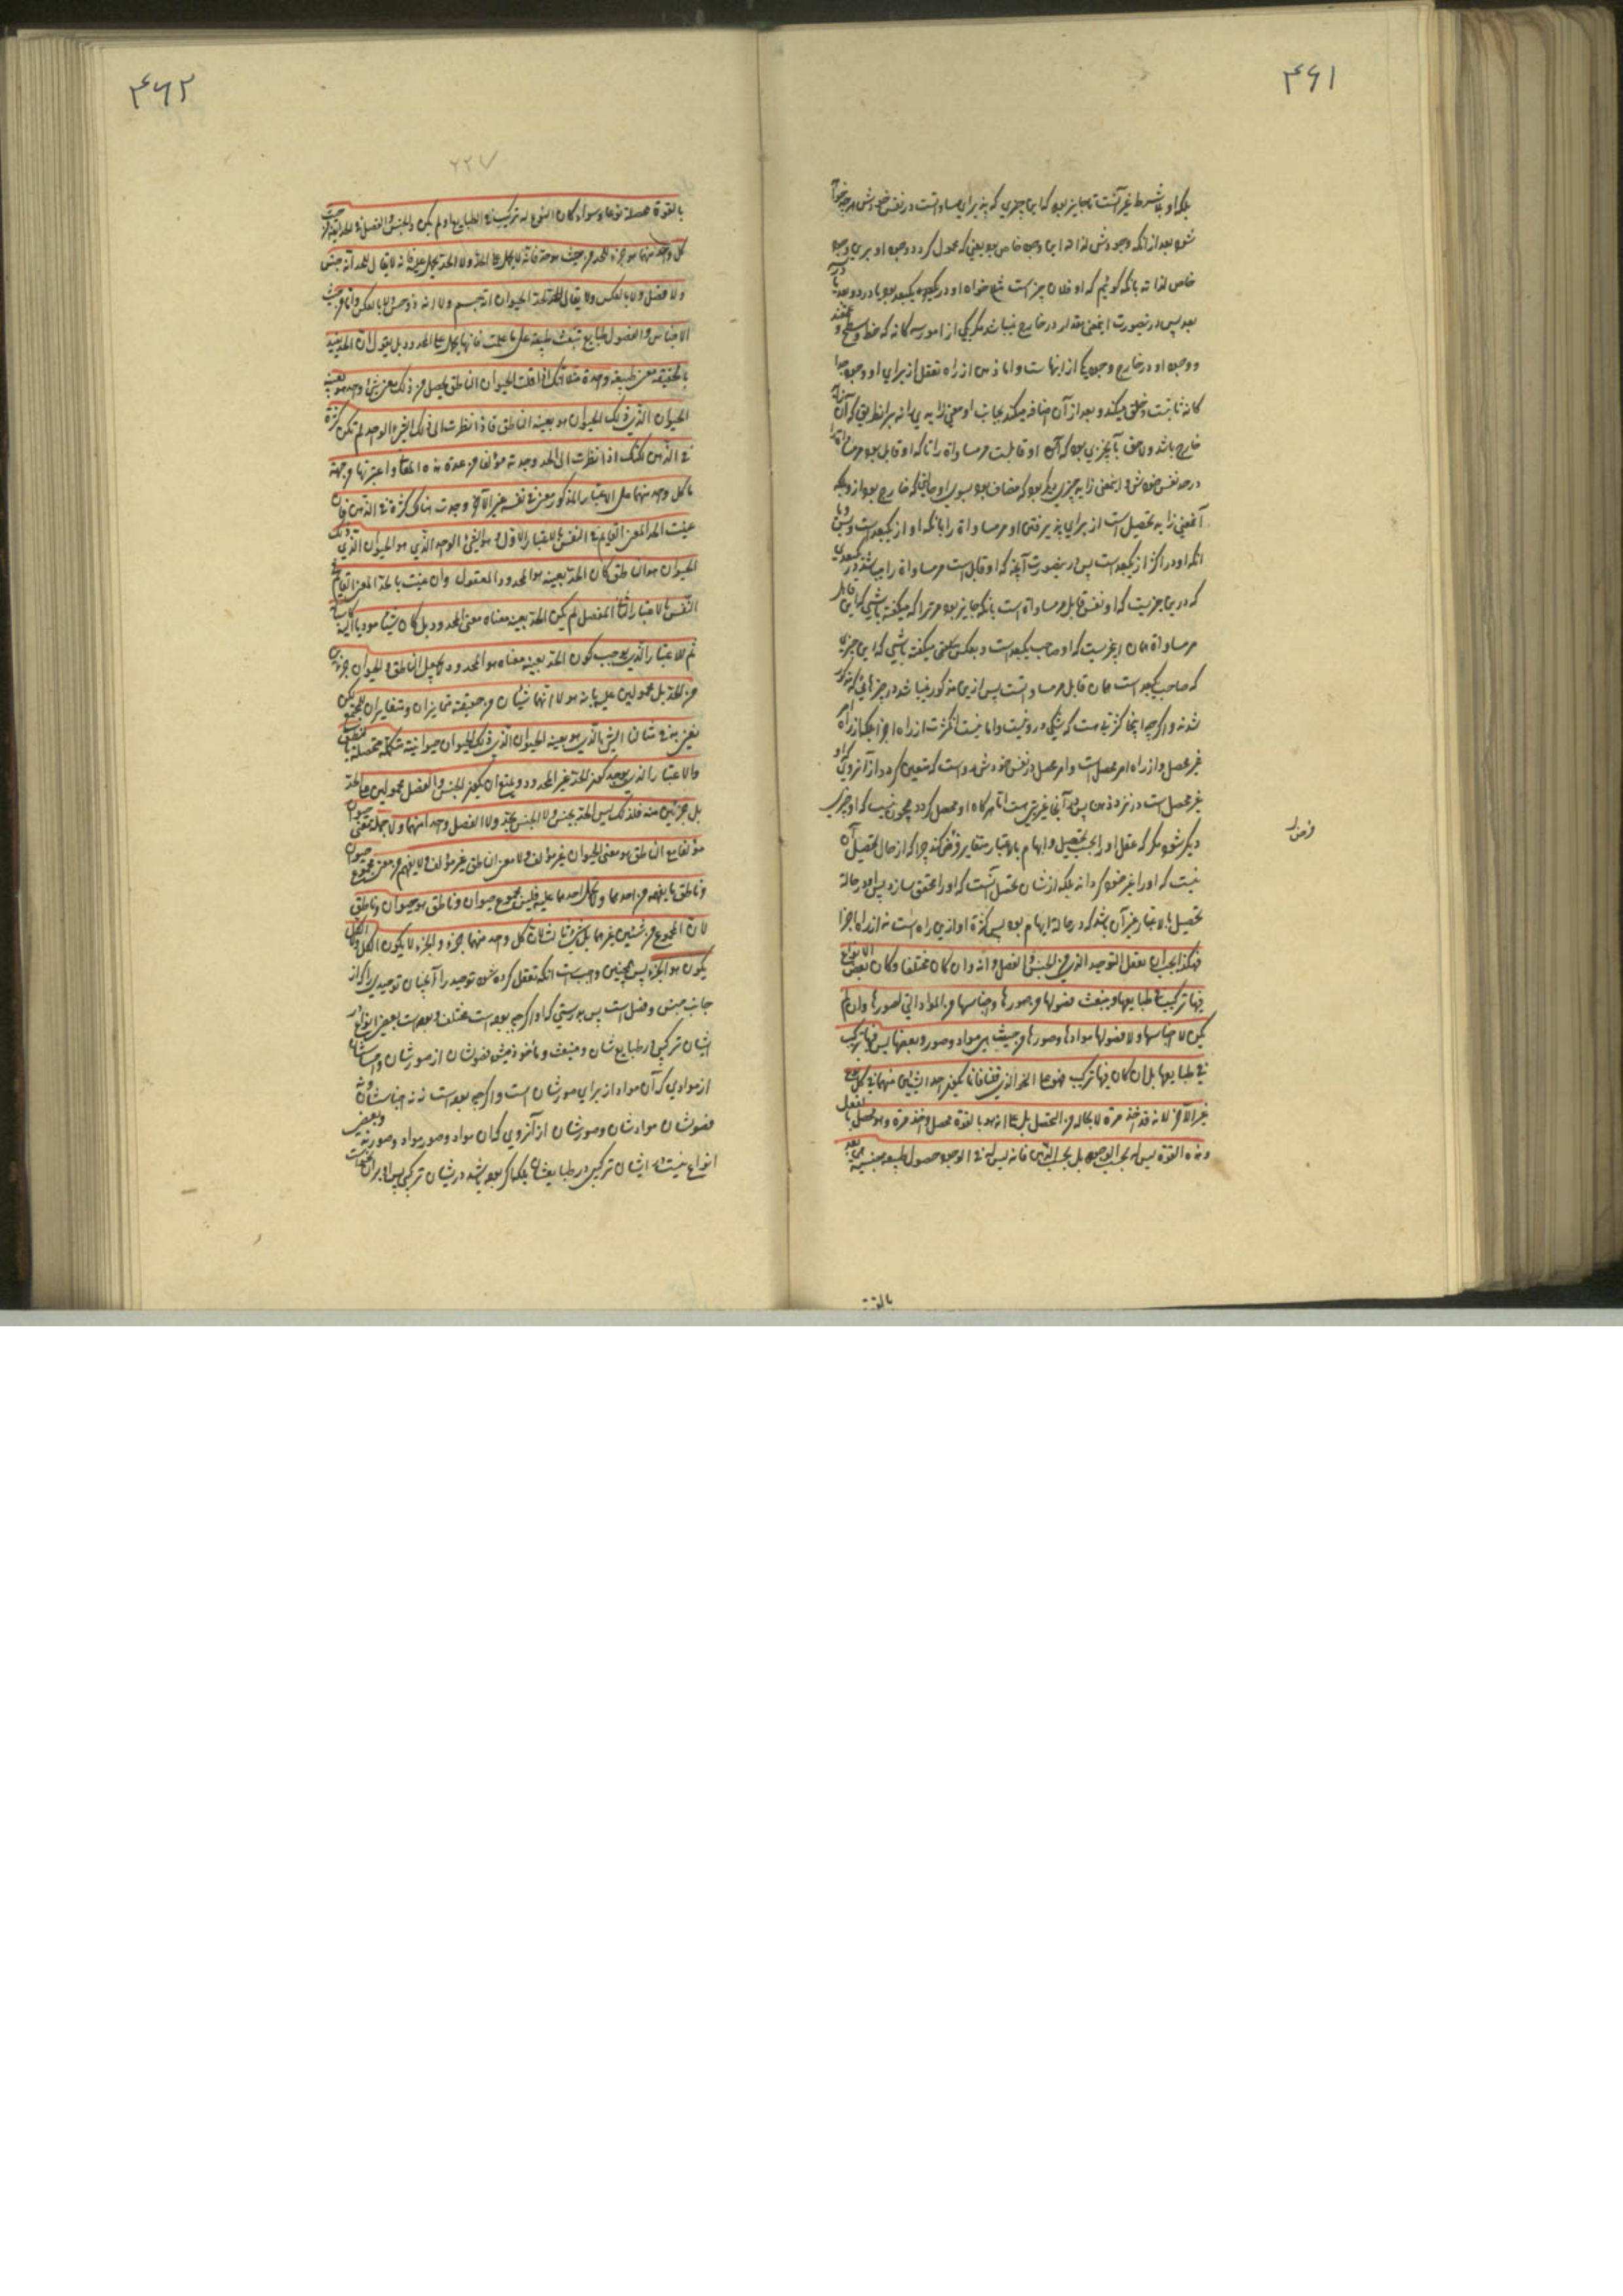 ۴۶۱
بلکه او بلا شرط غیر آنست تا جایز بود که این چیزی که پذیرای مساواتست در نفس خودش هر چه خواهد
شود بعد از آنکه وجودش لذاته این وجه خاص بود یعنی که محمول گردد وجود او برین وجه
خاص لذاته بآنکه گوئیم که او فلان چیز است خواه او در یک بعد بود یا در دو بعد یا در سه
بعد پس درینصورت اینمعنی مقدار در خارج نمیباشد مگر یکی از امور سه گانه که خط و سطح و
و وجود او در خارج وجود یکی از اینهاست و اما ذهن از راه تعقل از برای او وجود جدا
گانه ثابت و خلق میکند و بعد از آن اضافه میکند بجانب او معنی زاید را نه برانطریق که آن
خارج باشد و لاحق بآنچیزی بود که آن او قابلست مر مساواة را تا که او قابل بود مر مساواة را
در حد نفس خودش و اینمعنی زاید چیزی دیگر بود که مضاف بود بسوی او خارج بود از و بلکه
آنمعنی زاید تحصیل است از برای پذیرفتن او مر مساواة را بآنکه او از یکبعد است و بس و یا
آنکه او در اکثر از یکبعد است پس درینصورت آنچه که او قابل است مر مساواة را میباشد در یکبعدی
که درین چیزیست که او نفس قابل مر مساواة است بآنکه جایز بود مر ترا که میگفته باشی که این قابل
مر مساواة همان چیزیست که او صاحب یکبعد است و بعکس یعنی میگفته باشی که این چیزی
که صاحب یکبعد است همان قابل مر مساواتست پس ازین مذکور نمیباشد در چیزهائی که مذکور
شدند و اگرچه اینجا کثرتی هست که شکی درو نیست و اما نیست آنکثرت از راه اجزا بلکه از راه
غیر محصل و از راه امر محصل است و امر محصل در نفس خودش هست که متعین گردد از آنروی که او
غیر محصل است در نزد ذهن پس در آنجا غیریتی هست اما هر گاه او محصل گردد پس چون نیست که او چیزی
دیگر شود مگر که عقل او را بحسب تحصیل و ابهام باعتبار متغایر فرض کند چرا که از حال تحصیل آن
نیست که او را غیر خود گرداند بلکه از شان تحصل آنست که او را محقق سازد پس او در حالة
تحصیل بالاعتبار غیر آن باشد که در حالة ابهام بود پس کثرة او ازین راه است نه از راه اجزا
فهکذا یجب ان یعقل التوحید الذی من الجنس و الفصل و انه و ان کان مختلفا و کان بعض الانواع
فیها ترکیب فی طبایعها و ینبعث فصولها من صورها و اجناسها من المواد التی لصورها و ان لم
یکن لا اجناسها و لا فصولها موادها و صورها من حیث هی مواد و صور و بعضها لیس فیها ترکیب
فی طبایعها بل ان کان فیها ترکیب فهو علی النحو الذی قلنا فانما یکون احد الشیئین منهما فی کل نوع
غیر الآخر لانه قد اخذ مرة لا بحاله من التحصل بل علی انه هو بالقوة محصل و اخذ مرة و هو محصل بالفعل
و هذه القوة لیس له بحسب الوجود بل بحسب الذهن فانه لیس له فی الوجود حصول طبیعة جنسیة هی بعد
بالقوة
فرض
۴۶۲
۲۲۷
بالقوة محصلة نوعا و سواء کان النوع له ترکیب فی الطبایع او لم یکن و الجنس و الفصل فی الحد ایضا من حیث
کل واحد منهما هو جزء للحد من حیث هو حد فانه لا یحمل علی الحد و لا الحد یحمل علیه فانه لا یقال للحد انه جنس
و لا فصل و لا بالعکس و لا یقال لحد الحیوان انه جسم و لا انه ذو حس و لا بالعکس و اما من حیث
الاجناس و الفصول طبایع تنبعث طبیعة علی ما علمت فانها یحمل علی المحدود بل یقول ان الحد یفید
بالحقیقة معنی طبیعة واحدة مثلا انک اذا قلت الحیوان الناطق یحصل من ذلک معنی شیء واحد هو بعینه
الحیوان الذی ذلک الحیوان هو بعینه الناطق فاذا نظرت الی ذلک الشیء الواحد لم تکن کثرة
فی الذهن لکنک اذا نظرت الی الحد وجدته مؤلفا من عدة هذه المعانی و اعتبرتها من جهة
ما کل واحد منهما علی الاعتبار المذکور معنی فی نفسه غیر الآخر وجدت هناک کثرة فی الذهن فان
عنیت بالحد المعنی القایم فی النفس بالاعتبار الاول و هو الشیء الواحد الذی هو الحیوان الذی ذلک
الحیوان هو الناطق کان الحد بعینه هو المحدود المعقول و ان عنیت بالحد المعنی القایم فی
النفس بالاعتبار الثانی المفصل لم یکن الحد بعینه معناه معنی المحدود بل کان شیئا مودیا الیه کاسبا
ثم الاعتبار الذی یوجب کون الحد بعینه معناه هو المحدود لا یجعل الناطق و الحیوان جزئین
من الحد بل محمولین علیه بانه هو لا انهما شیئان من حقیقة متمایزان و متغایران للمجتمع لکن
نعنی به فی مثالنا الشیء الذی هو بعینه الحیوان الذی ذلک الحیوان حیوانیته مستکملة متحصلة بالنطق
و الاعتبار الذی یوجب کون الحد غیر المحدود یمنع ان یکون الجنس و الفصل محمولین علی الحد
بل جزئین منه فلذلک لیس الحد بجنس و لا الجنس بحد و لا الفصل واحدا منهما و لا جملة معنی حیوان
مؤلفا مع الناطق هو معنی الحیوان غیر مؤلف و لا معنی الناطق غیر مؤلف و لا یفهم من معنی مجموع حیوان
و ناطق ما یفهم من احدهما و لا یحمل احدهما علیه فلیس مجموع حیوان و ناطق هو حیوان و ناطق
لان المجموع من شیئین غیرهما بل شیء ثالث لان کل واحد منهما جزء و الجزء لا یکون الکل و لا الکل
یکون هو الجزء پس همچنین واجبست آنکه تعقل کرده شود توحید را آنچنان توحیدی را که از
جانب جنس و فصل است پس بدرستی که او اگرچه بوده است مختلف و بوده است بعض انواع در
ایشان ترکیبی در طبایع شان و منبعث و مأخوذ میشود فصولشان از صورشان و اجناسشان
از موادی که آن مواد از برای صورشان است و اگرچه بوده است نه نه اجناسشان و نه
فصولشان موادشان و صورشان از آنروی که آن مواد و صور مواد و صورند و بعض
انواع نیست در ایشان ترکیبی در طبایعشان بلکه اگر بوده باشد در ایشان ترکیبی پس او بر آن